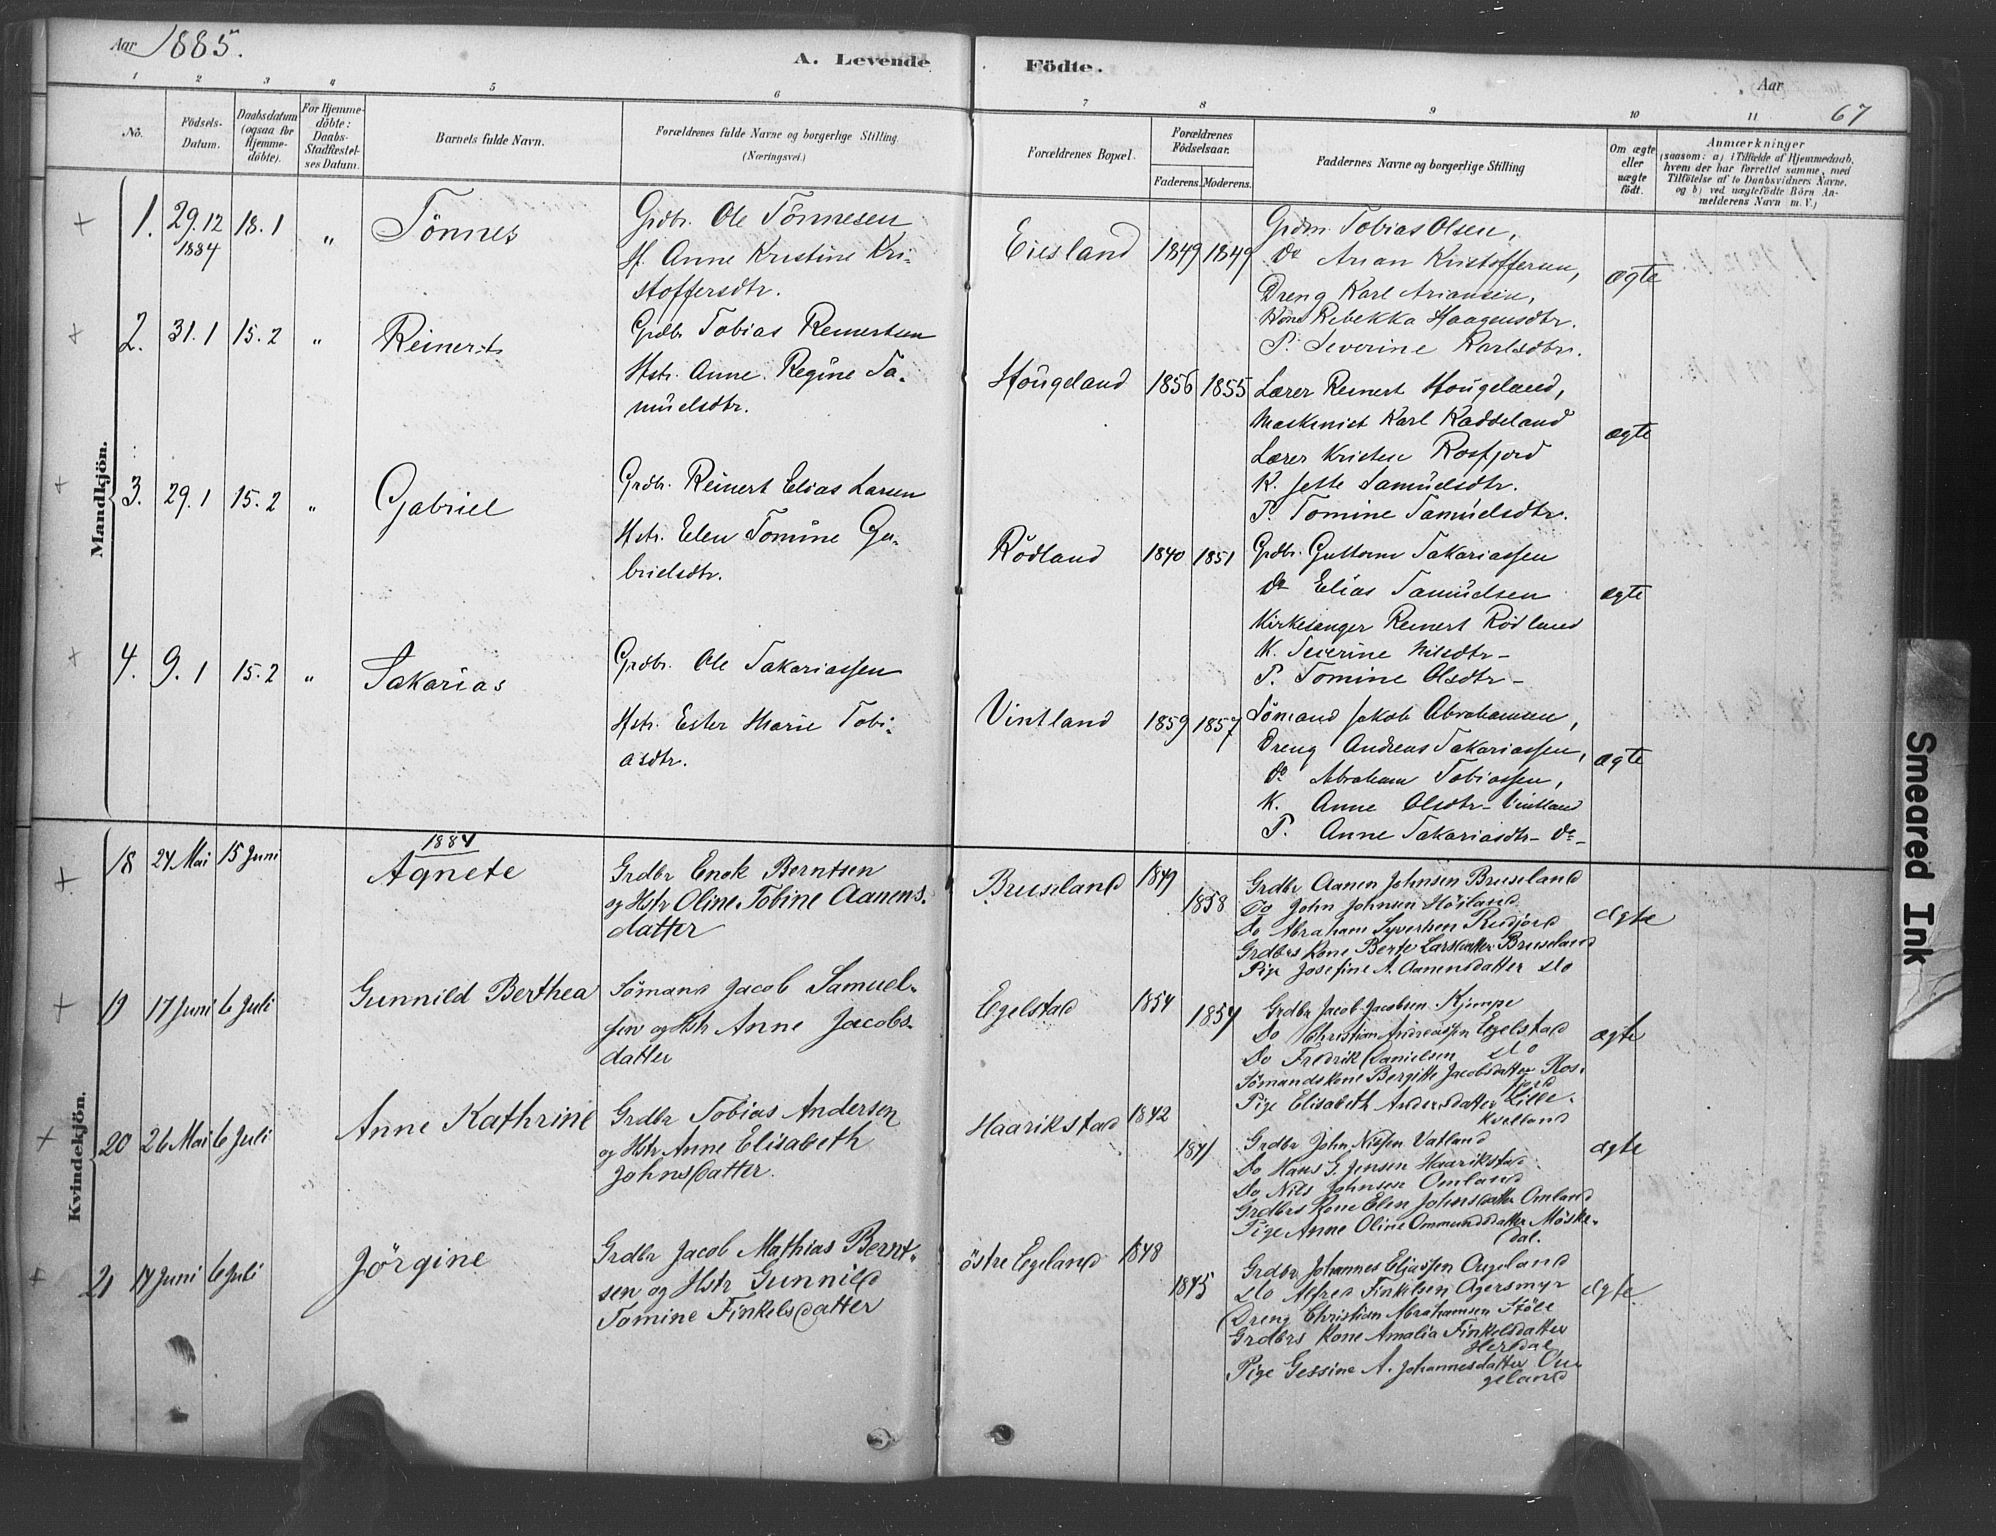 Aar 1885.
A. Levende Födte.
Aar
67
1 2 3 4 5 6 7 8 9 10 11
No.
Födsels-
Datum.
Daabsdatum
(ogsaa for
Hjemme-
döbte).
For Hjemme-
döbte:
Daabs-
Stadfæstel-
ses Datum.
Barnets fulde Navn.
Forældrenes fulde Navne og borgerlige Stilling.
(Næringsvei.)
Forældrenes Bopæl.
Forældrenes
Födselsaar.
Faderens. Moderens.
Faddernes Navne og borgerlige Stilling
Om ægte
eller
uægte
födt.
Anmærkninger
(saasom: a) i Tilfælde af Hjemmedaab,
hvem der har forrettet samme, med
Tilföielse af to Daabsvidners Navne,
og b) ved uægtefödte Börn An-
melderens Navn m. V.)
Mandkjön.
1. 29.12
1884
18.1 „ Tönnes
Grdbr. Ole Tönnesen
H. Anne Kristine Kri-
stoffersdtr.
Eiesland 1849 1849
Grdm. Tobias Olsen,
Do Arian Kristoffersen,
Dreng Karl Ariansen,
Kone Rebekka Haagensdtr.
P. Severine Karlsdtr.
ægte
2. 31.1 15.2 „ Reinert
Grdbr Tobias Reinertsen
Hstr. Anne Regine Sa-
muelsdtr.
Hougeland 1856 1855
Lærer Reinert Hougeland,
Maskinist Karl Raddeland
Lærer Kristen Rosfjord
K. Jette Samuelsdtr.
P. Tomine Samuelsdtr.
ægte
3. 29.1 15.2 „ Gabriel
Grdbr. Reinert Elias Larsen
Hstr. Elen Tomine Ga-
brielsdtr.
Rödland 1840 1851
Grdbr. Guttorm Sakariassen
Do Elias Samuelsen
Kirkesanger Reinert Rödland
K. Severine Nilsdtr-
P. Tomine Olsdtr-
ægte
4. 9.1 15.2 „ Sakarias
Grdbr. Ole Sakariassen
Hstr. Ester Marie Tobi-
asdtr.
Vintland 1859 1857
Sömand Jakob Abrahamsen,
Dreng Andreas Sakariassen,
do Abraham Tobiassen,
K. Anne Olsdtr- Vintland
P. Anne Sakariasdtr- do-
ægte
Kvindekjön.
1884
18 24 Mai 15 Juni Agnete
Grdbr Enok Berntsen
og Hstr Oline Tobine Aanens-
datter
Bruseland 1849 1858
Grdbr Aanen Johnsen Bruseland
Do John Johnsen Höiland
Do Abraham Syvertsen Rudjord
Grdbrs Kone Berte Larsdatter Bruseland
Pige Josefine A. Aanensdatter do
ægte
19 17 Juni 6 Juli Gunnild Berthea
Sömand Jacob Samuel-
sen og Hstr Anne Jacobs-
datter
Egelstad 1854 1854
Grdbr Jacob Jacobsen Kjempe
Do Christian Andreassen Egelstad
Do Fredrik Danielsen do
Sömandskone Bergitte Jacobsdatter Ros-
fjord
Pige Elisabeth Andersdatter Lille-
Kvelland
ægte
20 26 Mai 6 Juli Anne Kathrine
Grdbr Tobias Andersen
og Hstr Anne Elisabeth
Johnsdatter
Haarikstad 1842 1841
Grdbr John Nilsen Vatland
Do Hans G. Jensen Haarikstad
Do Nils Johnsen Omland
Grdbrs Kone Elen Johnsdatter Omland
Pige Anne Oline Ommundsdatter Möske-
dal.
ægte
21 14 Juni 6 Juli Jörgine
Grdbr Jacob Mathias Bernt-
sen og Hstr Gunnild
Tomine Finkelsdatter
östre Egeland 1848 1845
Grdbr Johannes Eliassen Augeland
do Alfred Finkelsen Agersmyr
Dreng Christian Abrahamsen Stöle
Grdbrs Kone Amalia Finkelsdatter
Herdal
Pige Gessine A. Johannesdatter Au-
geland
ægte
Smeared Ink